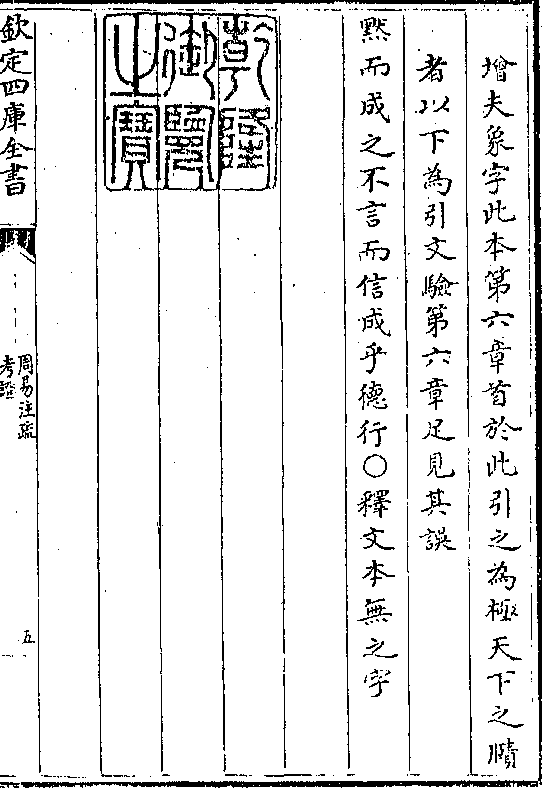 增夫象字此本第六章首於此引之為極天下之賾
者以下為引文驗第六章足見其誤
黙而成之不言而信成乎德行○釋文本無之字
乾隆
御覽
之寶
欽定四庫全書
周易注疏
考證
五